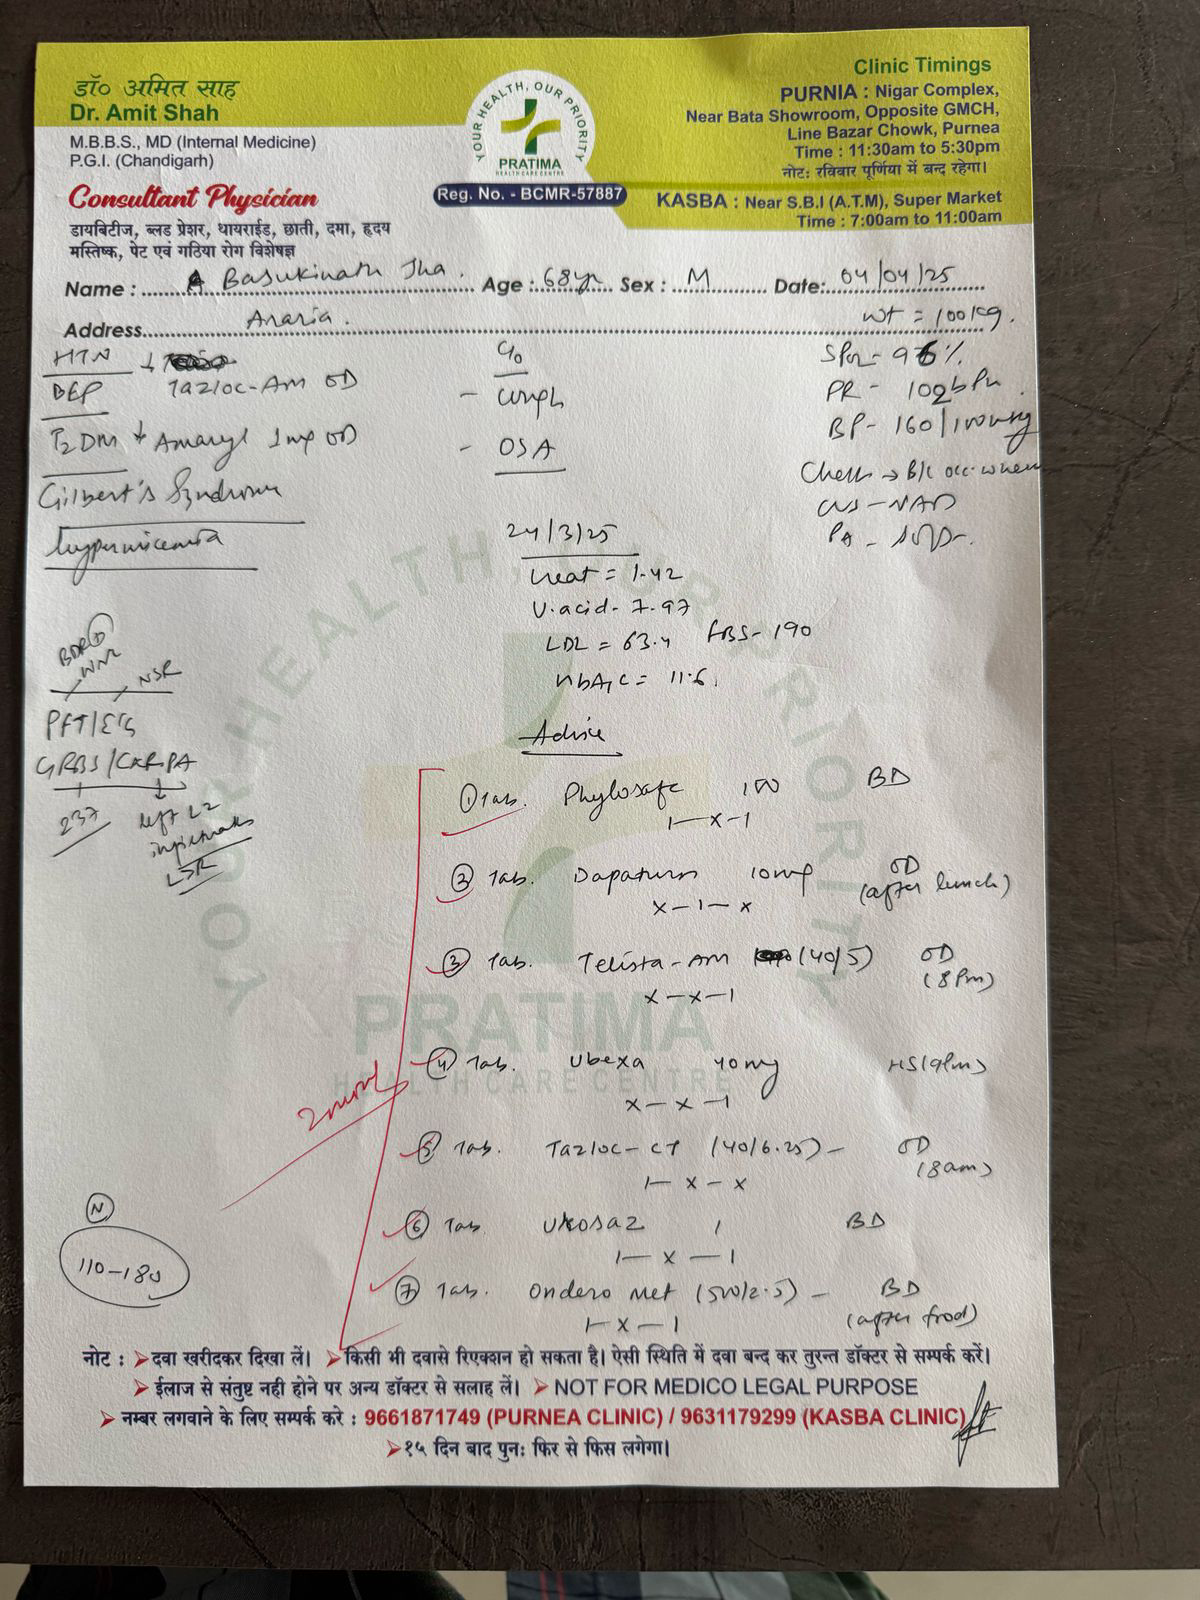 डॉ० अमित साह
Dr. Amit Shah
M.B.B.S., MD (Internal Medicine)
P.G.I. (Chandigarh)
Consultant Physician
डायबिटीज, ब्लड प्रेशर, थायराईड, छाती, दमा, हृदय
मस्तिष्क, पेट एवं गठिया रोग विशेषज्ञ
YOUR HEALTH, OUR PRIORITY
PRATIMA
HEALTH CARE CENTRE
Reg. No. - BCMR-57887
Clinic Timings
PURNIA : Nigar Complex,
Near Bata Showroom, Opposite GMCH,
Line Bazar Chowk, Purnea
Time : 11:30am to 5:30pm
नोट: रविवार पूर्णिया में बन्द रहेगा।
KASBA : Near S.B.I (A.T.M), Super Market
Time : 7:00am to 11:00am
Name : Basukinath Jha. Age : 68yr Sex : M Date: 04/04/25
Address Araria.
wt = 100kg.
HTN ↓
Tazloc-AM OD
BEP
T2DM Amaryl 1mg OD
Gilbert's Syndrome
c/o
- OSA
SPO2- 96%
PR -
BP- 160/100
Chest → B/L occ. wheeze
CVS - NAD
PA -
24/3/25
= 1.42
U.acid- 7.97
LDL = 63.4 FBS- 190
HbA1C = 11.6
NSR
PFT/ECG
GRBS
237
left
Advice
① Tab. Phylosafe 100 BD
1—x—1
② Tab. 10mg OD
(after lunch)
x—1—x
③ Tab. Telista-AM (40/5) OD
(8Pm)
x—x—1
④ Tab. Ubexa 40mg HS(9Pm)
x—x—1
⑤ Tab. Tazloc-CT (40/6.25)— OD
(8am)
1—x—x
⑥ Tab 1 BD
1—x—1
⑦ Tab. Ondero Met (500/2.5) — BD
(after food)
1—x—1
N
110-180
YOUR HEALTH, OUR PRIORITY
PRATIMA
HEALTH CARE CENTRE
नोट : ➤दवा खरीदकर दिखा लें। ➤किसी भी दवासे रिएक्शन हो सकता है। ऐसी स्थिति में दवा बन्द कर तुरन्त डॉक्टर से सम्पर्क करें।
➤ईलाज से संतुष्ट नही होने पर अन्य डॉक्टर से सलाह लें। ➤NOT FOR MEDICO LEGAL PURPOSE
➤नम्बर लगवाने के लिए सम्पर्क करे : 9661871749 (PURNEA CLINIC) / 9631179299 (KASBA CLINIC)
➤१५ दिन बाद पुनः फिर से फिस लगेगा।